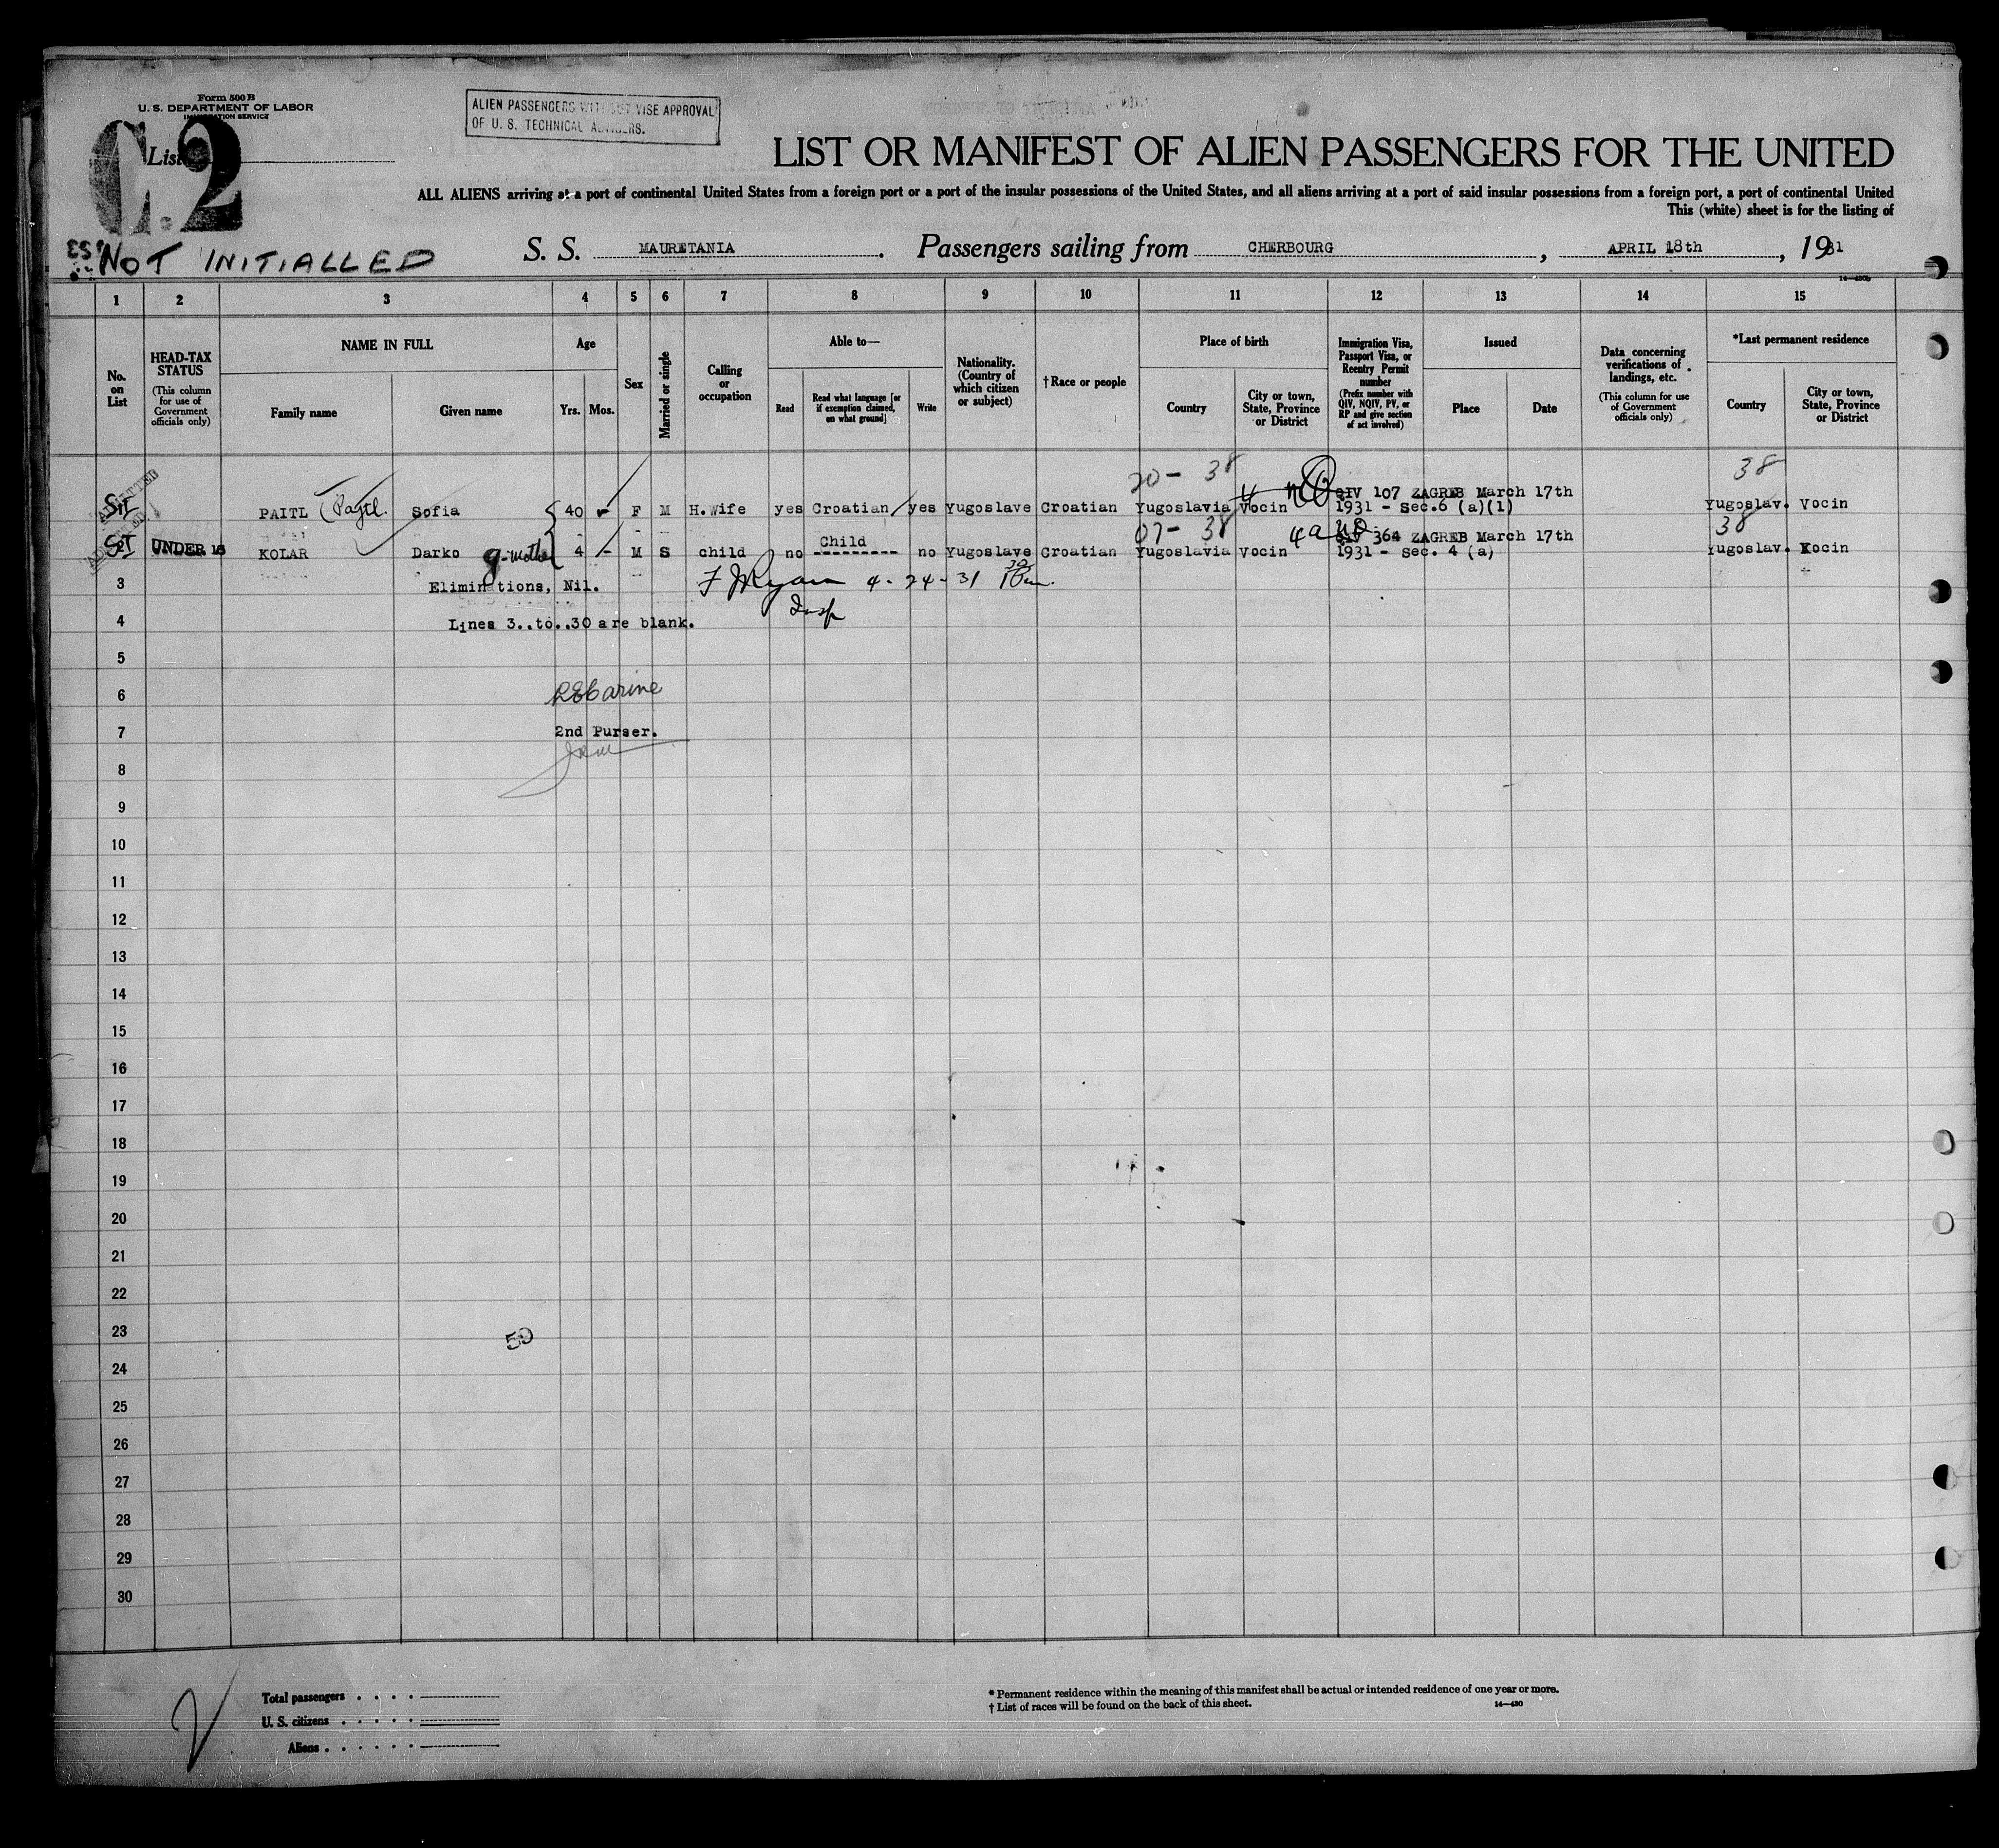 Form 500 B
U. S. DEPARTMENT OF LABOR
IMMIGRATION SERVICE
List
C.2
ALIEN PASSENGERS WITHOUT VISE APPROVAL
OF U. S. TECHNICAL ADVISERS.
LIST OR MANIFEST OF ALIEN PASSENGERS FOR THE UNITED
ALL ALIENS arriving at a port of continental United States from a foreign port or a port of the insular possessions of the United States, and all aliens arriving at a port of said insular possessions from a foreign port, a port of continental United
This (white) sheet is for the listing of
NOT INITIALLED
S. S. MAURETANIA . Passengers sailing from CHERBOURG , APRIL 18th , 1931
14—430b
1 2 3 4 5 6 7 8 9 10 11 12 13 14 15
No. on List
HEAD-TAX STATUS
(This column for use of Government officials only)
NAME IN FULL
Family name
Given name
Age
Yrs. Mos.
Sex
Married or single
Calling or occupation
Able to—
Read
Read what language [or if exemption claimed, on what ground]
Write
Nationality. (Country of which citizen or subject)
†Race or people
Place of birth
Country
City or town, State, Province or District
Immigration Visa, Passport Visa, or Reentry Permit number
(Prefix number with QIV, NQIV, PV, or RP and give section of act involved)
Issued
Place
Date
Data concerning verifications of landings, etc.
(This column for use of Government officials only)
*Last permanent residence
Country
City or town, State, Province or District
20 - 38
38
QIV 107 ZAGREB March 17th
PAITL (Pajtl. Sofia 40 F M H.wife yes Croatian yes Yugoslave Croatian Yugoslavia Vocin 1931 - Sec.6 (a)(1) Yugoslav. Vocin
07 - 38
38
Child
QIV 364 ZAGREB March 17th
UNDER 16 KOLAR Darko g-mother 4 - M S child no --------- no Yugoslave Croatian Yugoslavia Vocin 1931 - sec. 4 (a) Yugoslav. Vocin
3 Eliminations, Nil. F J Ryan 4 - 24 - 31
Insp
4 Lines 3..to..30 are blank.
5
6
7 2nd Purser.
8
9
10
11
12
13
14
15
16
17
18
19
20
21
22
23
50
24
25
26
27
28
29
30
Total passengers . . . .
U. S. citizens . . . . .
Aliens . . . . . .
* Permanent residence within the meaning of this manifest shall be actual or intended residence of one year or more.
† List of races will be found on the back of this sheet.
14—430